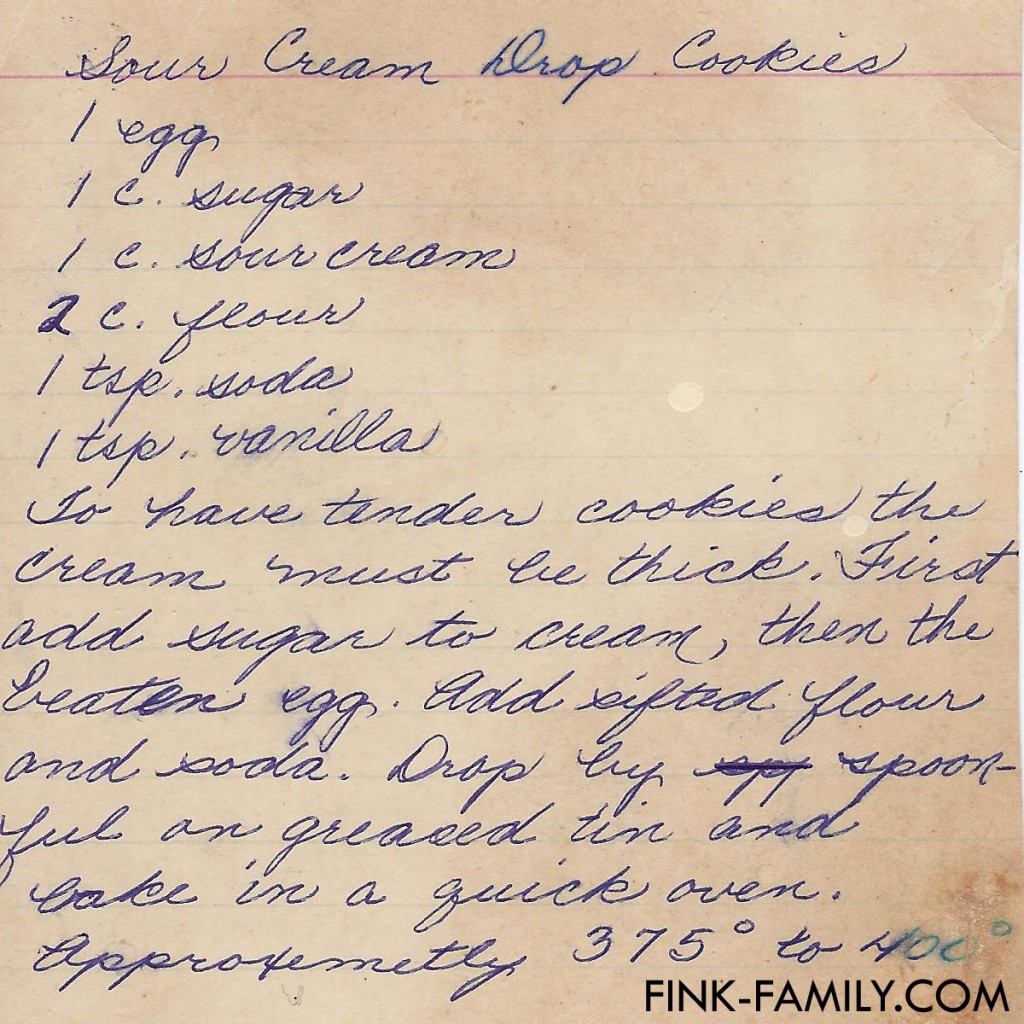 Sour Cream Drop Cookies
1 egg
1 c. sugar
1 c. sour cream
2 c. flour
1 tsp. soda
1 tsp. vanilla
To have tender cookies the
cream must be thick. First
add sugar to cream, then the
beaten egg. Add sifted flour
and soda. Drop by spoon-
ful on greased tin and
bake in a quick oven.
Approxemetly 375° to 400°
FINK-FAMILY.COM